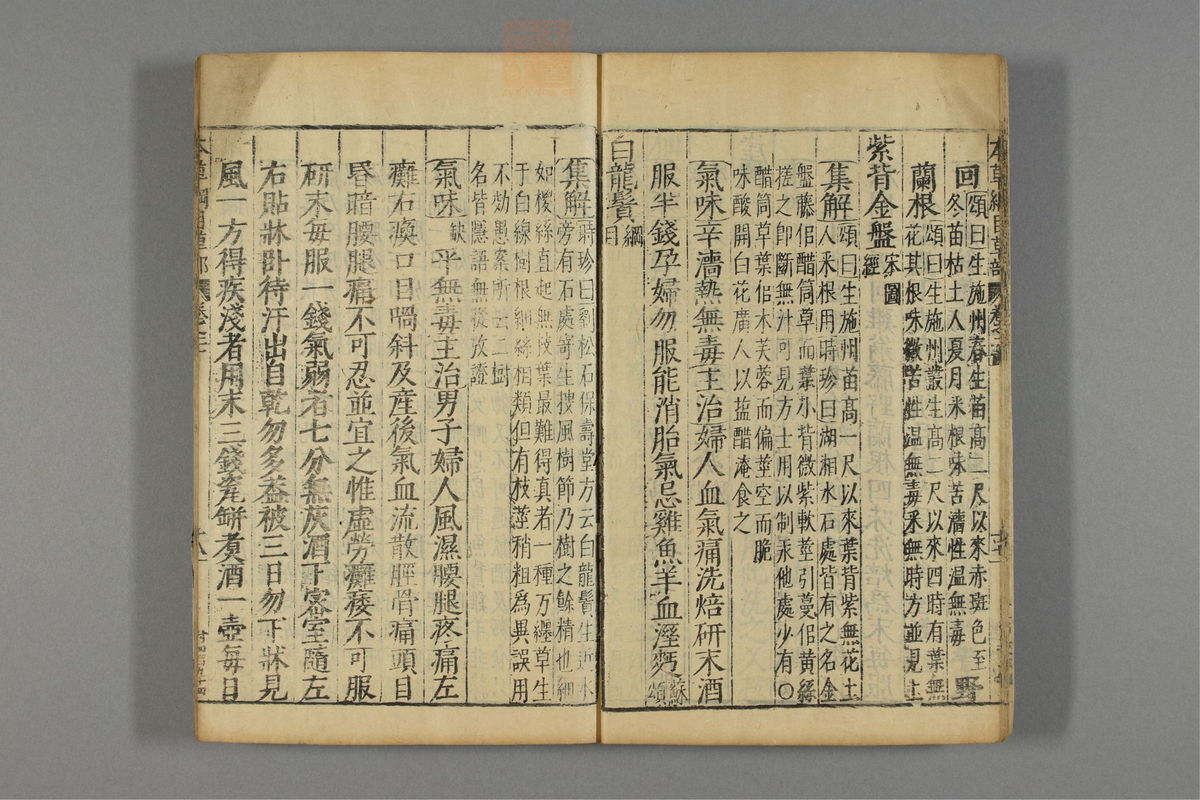 回頌曰生施州春生苗高一尺以來赤斑色至
冬苗枯土人夏月采根味苦濇性溫無毒 野
蘭根頌曰生施州叢生高二尺以來四時有葉無
花其根味微苦性溫無毒采無時方並見上
紫背金盤宋圖經
集解頌曰生施州苗高一尺以來葉背紫無花土
人采根用時珍曰湖湘水石處皆有之名金
盤藤佀醋筒草而葉小背微紫軟莖引蔓佀黃絲
搓之卽斷無汁可見方士用以制汞他處少有○
醋筒草葉佀木芙蓉而偏莖空而脆
味酸開白花廣人以鹽醋淹食之
氣味辛濇熱無毒主治婦人血氣痛洗焙研末酒
服半錢孕婦勿服能消胎氣忌雞魚羊血溼麪蘇頌
白龍鬚綱目
集解時珍曰劉松石保壽堂方云白龍鬚生近水
旁有石處寄生搜風樹節乃樹之餘精也細
如椶絲直起無枝葉最難得真者一種万纏草生
于白線樹根細絲相類但有枝莖稍粗爲異誤用
不効愚案所云二樹
名皆隱語無從攷證
氣味缺平無毒主治男子婦人風濕腰腿疼痛左
癱右瘓口目喎斜及産後氣血流散脛骨痛頭目
昏暗腰腿痛不可忍並宜之惟虛勞癱痿不可服
研末每服一錢氣弱者七分無灰酒下密室隨左
右貼牀卧待汗出自乾勿多葢被三日勿下牀見
風一方得疾淺者用末三錢瓷缾煑酒一壺每日
本草綱目草部